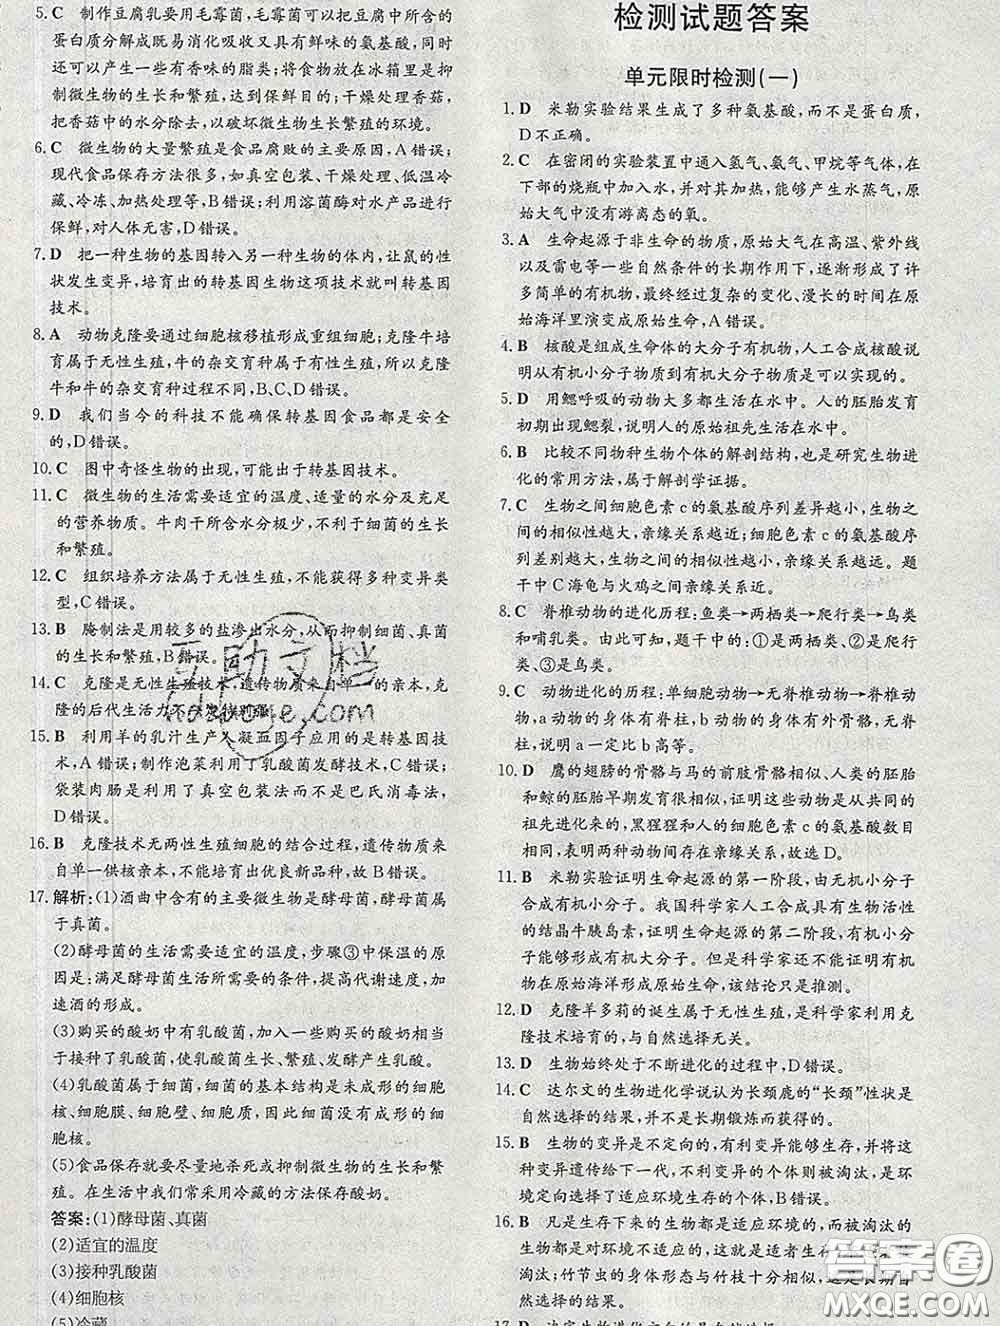 5. C 制作豆腐乳要用毛霉菌,毛霉菌可以把豆腐中所含的
蛋白质分解成既易消化吸收又具有鲜味的氨基酸,同时
还可以产生一些有香味的脂类;将食物放在冰箱里是抑
制微生物的生长和繁殖,达到保鲜目的;干燥处理香菇,
把香菇中的水分除去,以破坏微生物生长繁殖的环境。
6. C 微生物的大量繁殖是食品腐败的主要原因,A错误;
现代食品保存方法很多,如真空包装、干燥处理、低温冷
藏、冷冻、加热处理等,B错误;利用溶菌酶对水产品进行
保鲜,对人体无害,D错误。
7. D 把一种生物的基因转入另一种生物的体内,让鼠的性
状发生变异,培育出的转基因生物这项技术就叫转基因
技术。
8. A 动物克隆要通过细胞核移植形成重组细胞;克隆牛培
育属于无性生殖,牛的杂交育种属于有性生殖,所以克隆
牛和牛的杂交育种过程不同,B、C、D错误。
9. D 我们当今的科技不能确保转基因食品都是安全
的,D错误。
10. C 图中奇怪生物的出现,可能出于转基因技术。
11. C 微生物的生活需要适宜的温度、适量的水分及充足
的营养物质。牛肉干所含水分极少,不利于细菌的生长
和繁殖。
12. C 组织培养方法属于无性生殖,不能获得多种变异类
型,C错误。
13. B 腌制法是用较多的盐渗出水分,从而抑制细菌、真菌
的生长和繁殖,B错误。
14. C 克隆是无性生殖技术,遗传物质来自单一的亲本,克
隆的后代生活力
15. B 利用羊的乳汁生产人凝血因子应用的是转基因技
术,A错误;制作泡菜利用了乳酸菌发酵技术,C错误;
袋装肉肠是利用了真空包装法而不是巴氏消毒法,
D错误。
16. B 克隆技术无两性生殖细胞的结合过程,遗传物质来
自单一供核亲本,不能培育出优良新品种,故B错误。
17. 解析:(1)酒曲中含有的主要微生物是酵母菌,酵母菌属
于真菌。
(2)酵母菌的生活需要适宜的温度,步骤③中保温的原
因是:满足酵母菌生活所需要的条件,提高代谢速度,加
速酒的形成。
(3)购买的酸奶中有乳酸菌,加入一些购买的酸奶相当
于接种了乳酸菌,使乳酸菌生长、繁殖、发酵产生乳酸。
(4)乳酸菌属于细菌,细菌的基本结构是未成形的细胞
核、细胞膜、细胞壁、细胞质,因此细菌没有成形的细
胞核。
(5)食品保存就要尽量地杀死或抑制微生物的生长和繁
殖。在生活中我们常采用冷藏的方法保存酸奶。
答案:(1)酵母菌、真菌
(2)适宜的温度
(3)接种乳酸菌
(4)细胞核
(5)冷藏
检测试题答案
单元限时检测(一)
1. D 米勒实验结果生成了多种氨基酸,而不是蛋白质,
D不正确。
2. C 在密闭的实验装置中通入氢气、氨气、甲烷等气体,在
下部的烧瓶中加入水,并对其加热,能够产生水蒸气,原
始大气中没有游离态的氧。
3. A 生命起源于非生命的物质,原始大气在高温、紫外线
以及雷电等一些自然条件的长期作用下,逐渐形成了许
多简单的有机物,最终经过复杂的变化、漫长的时间在原
始海洋里演变成原始生命,A错误。
4. B 核酸是组成生命体的大分子有机物,人工合成核酸说
明从有机小分子物质到有机大分子物质是可以实现的。
5. D 用鳃呼吸的动物大多都生活在水中。人的胚胎发育
初期出现鳃裂,说明人的原始祖先生活在水中。
6. B 比较不同物种生物个体的解剖结构,也是研究生物进
化的常用方法,属于解剖学证据。
7. C 生物之间细胞色素c的氨基酸序列差异越小,生物之
间的相似性越大,亲缘关系越近;细胞色素c的氨基酸序
列差别越大,生物之间的相似性越小,亲缘关系越远。题
干中C海龟与火鸡之间亲缘关系近。
8. C 脊椎动物的进化历程:鱼类→两栖类→爬行类→鸟类
和哺乳类。由此可知,题干中的:①是两栖类、②是爬行
类、③是鸟类。
9. C 动物进化的历程:单细胞动物→无脊椎动物→脊椎动
物,a动物的身体有脊柱,b动物的身体有外骨骼,无脊
柱,说明a一定比b高等。
10. D 鹰的翅膀的骨骼与马的前肢骨骼相似、人类的胚胎
和鲸的胚胎早期发育很相似,证明这些动物是从共同的
祖先进化来的,黑猩猩和人的细胞色素c的氨基酸数目
相同,表明两种动物间存在亲缘关系,故选D。
11. B 米勒实验证明生命起源的第一阶段,由无机小分子
合成有机小分子。我国科学家人工合成具有生物活性
的结晶牛胰岛素,证明生命起源的第二阶段,有机小分
子能够形成有机大分子。但是科学家还不能证明有机
物在原始海洋形成原始生命,该结论只是推测。
12. D 克隆羊多莉的诞生属于无性生殖,是科学家利用克
隆技术培育的,与自然选择无关。
13. D 生物始终处于不断进化的过程中,D错误。
14. C 达尔文的生物进化学说认为长颈鹿的“长颈”性状是
自然选择的结果,并不是长期锻炼而获得的。
15. B 生物的变异是不定向的,有利变异能够生存,并将这
种变异遗传给下一代,不利变异的个体则被淘汰,是环
境定向选择了适应环境生存的个体,B错误。
16. B 凡是生存下来的生物都是适应环境的,而被淘汰的
生物都是对环境不适应的,这就是适者生存,不适者被
淘汰;竹节虫的身体形态与竹枝十分相似,这是长期自
然选择的结果。
17. D
互助文档
hdzuoye.com
答案圈
MXQE.COM